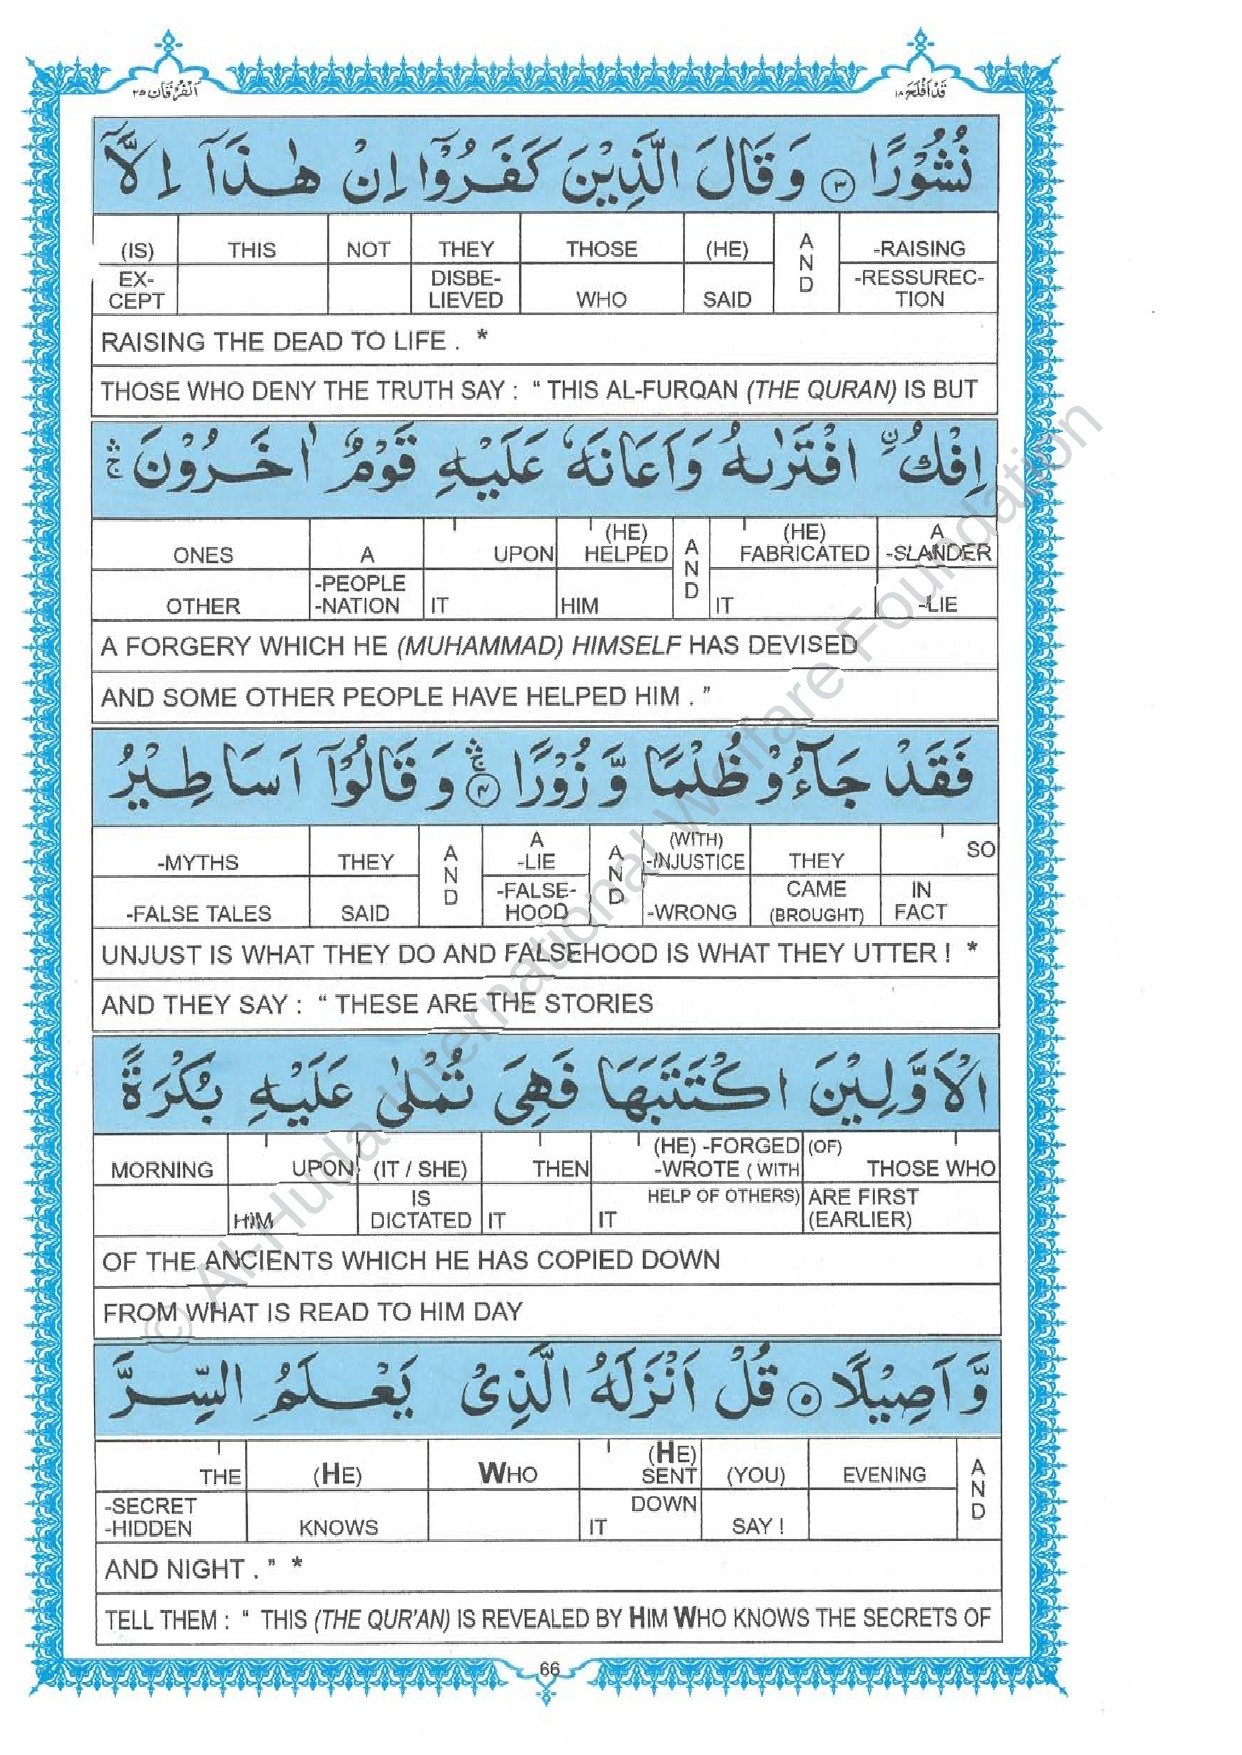 قَدْ اَفْلَحَ ١٨
اَلْفُرْقَان ٢٥
نُشُوْرًا ۝٣ وَقَالَ الَّذِيْنَ كَفَرُوْٓا اِنْ هٰذَآ اِلَّآ
(IS) THIS NOT THEY THOSE (HE) AND -RAISING
EX-CEPT DISBE-LIEVED WHO SAID -RESSUREC-TION
RAISING THE DEAD TO LIFE . *
THOSE WHO DENY THE TRUTH SAY : “ THIS AL-FURQAN (THE QURAN) IS BUT
اِفْكُ ۨ افْتَرٰىهُ وَاَعَانَهٗ عَلَيْهِ قَوْمٌ اٰخَرُوْنَ ۛۚ
ONES A UPON (HE) HELPED AND (HE) FABRICATED A -SLANDER
OTHER -PEOPLE -NATION IT HIM IT -LIE
A FORGERY WHICH HE (MUHAMMAD) HIMSELF HAS DEVISED
AND SOME OTHER PEOPLE HAVE HELPED HIM . ”
فَقَدْ جَآءُوْ ظُلْمًا وَّ زُوْرًا ۝٤ۛۚ وَ قَالُوْٓا اَسَاطِيْرُ
-MYTHS THEY AND A -LIE AND (WITH) -INJUSTICE THEY SO
-FALSE TALES SAID -FALSE-HOOD -WRONG CAME (BROUGHT) IN FACT
UNJUST IS WHAT THEY DO AND FALSEHOOD IS WHAT THEY UTTER ! *
AND THEY SAY : “ THESE ARE THE STORIES
الْاَوَّلِيْنَ اكْتَتَبَهَا فَهِىَ تُمْلٰى عَلَيْهِ بُكْرَةً
MORNING UPON (IT / SHE) THEN (HE) -FORGED -WROTE ( WITH (OF) THOSE WHO
HIM IS DICTATED IT IT HELP OF OTHERS) ARE FIRST (EARLIER)
OF THE ANCIENTS WHICH HE HAS COPIED DOWN
FROM WHAT IS READ TO HIM DAY
وَّ اَصِيْلًا ۝٥ قُلْ اَنْزَلَهُ الَّذِىْ يَعْلَمُ السِّرَّ
THE (HE) WHO (HE) SENT (YOU) EVENING AND
-SECRET -HIDDEN KNOWS IT DOWN SAY !
AND NIGHT . ” *
TELL THEM : “ THIS (THE QUR'AN) IS REVEALED BY HIM WHO KNOWS THE SECRETS OF
66
© Al-Huda International Welfare Foundation